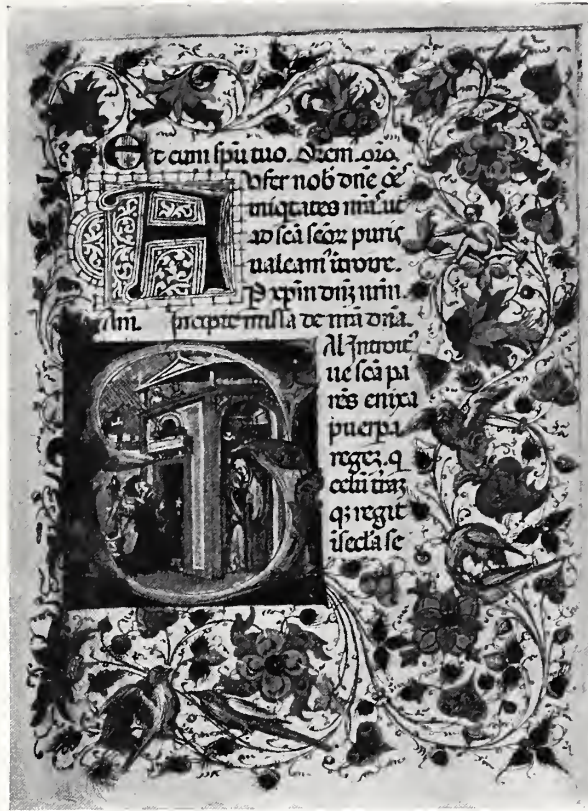 Et cum spũ tuo. Orem. oro
Aufer nob dñe q̃s
iniq̃tates nr̃a. ut
ad sc̃a sc̃or puris
ualeam' ĩtroire.
P xp̃m dñz nr̃m.
Am. Incipit missa de nr̃a dña.
Al Introit'
Salue sc̃a pa
rẽs enixa
puerpa
regez. q
celũ traz
qz regit
ĩ secla se